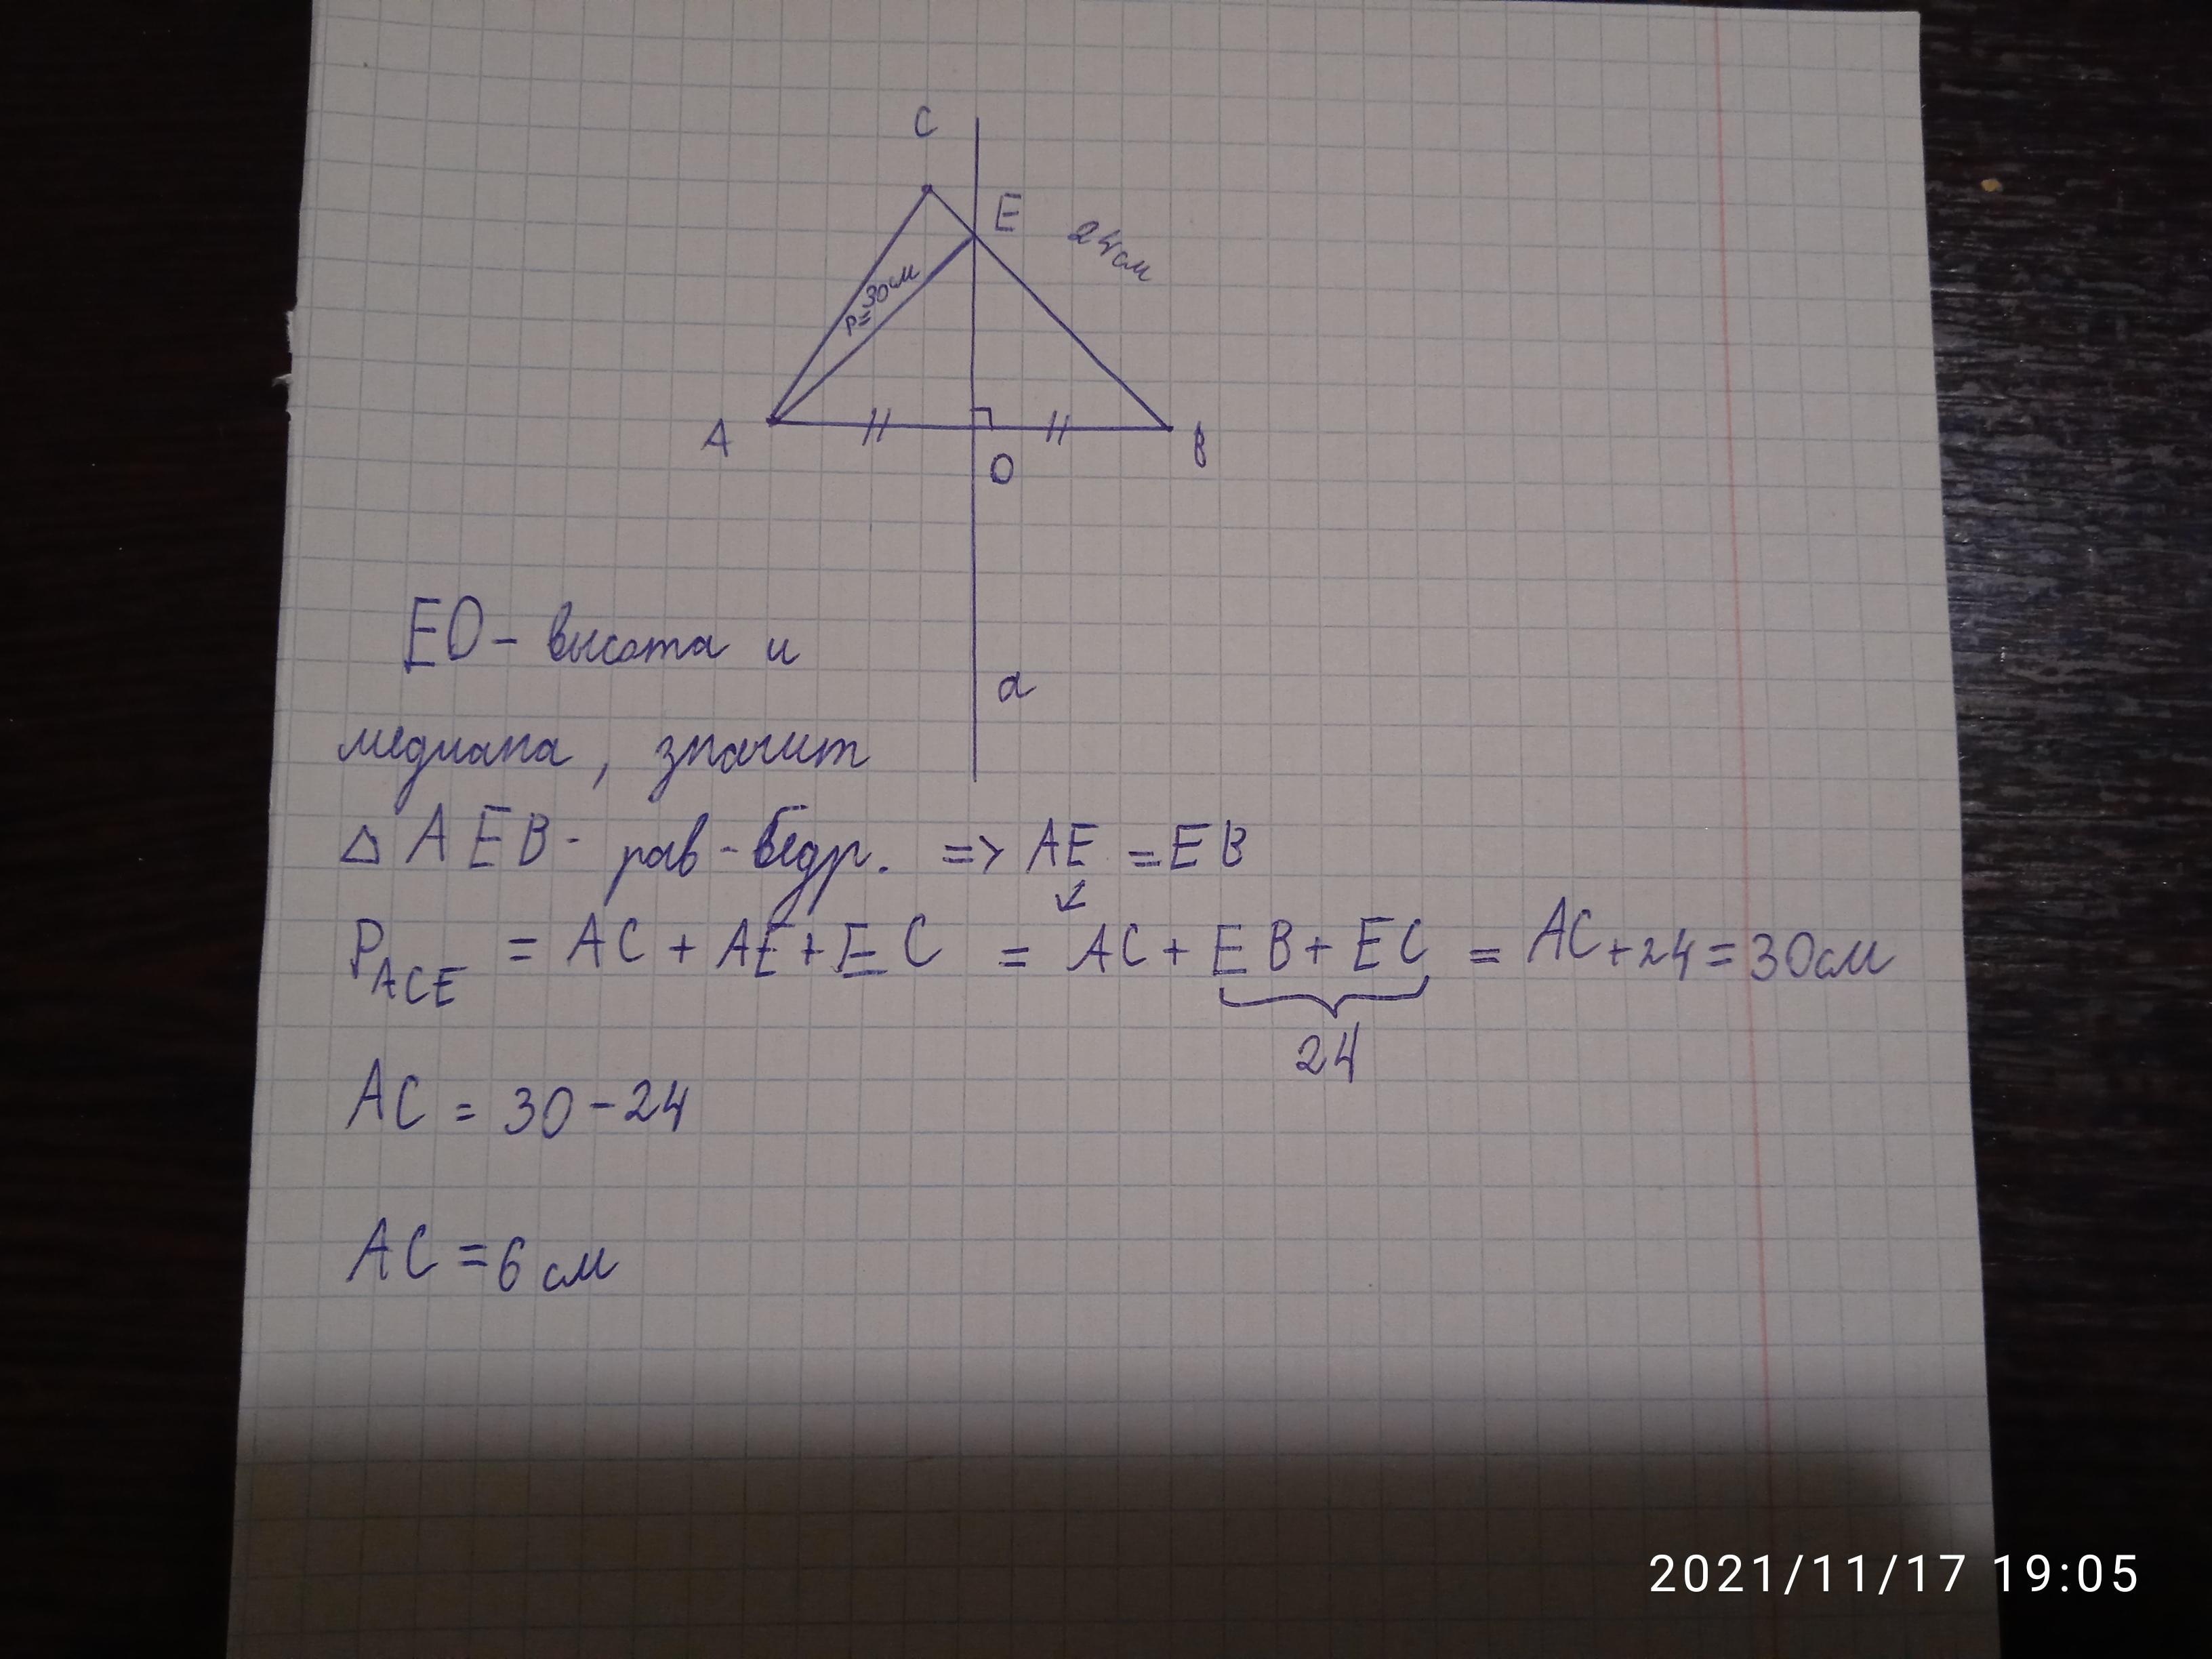 C
E
24см
P=30см
A
B
O
EO - высота и
a
медиана, значит
△ AEB - рав-бедр. => AE = EB
P ACE = AC + AE + EC = AC + EB + EC = AC + 24 = 30см
24
AC = 30 - 24
AC = 6 см
2021/11/17 19:05